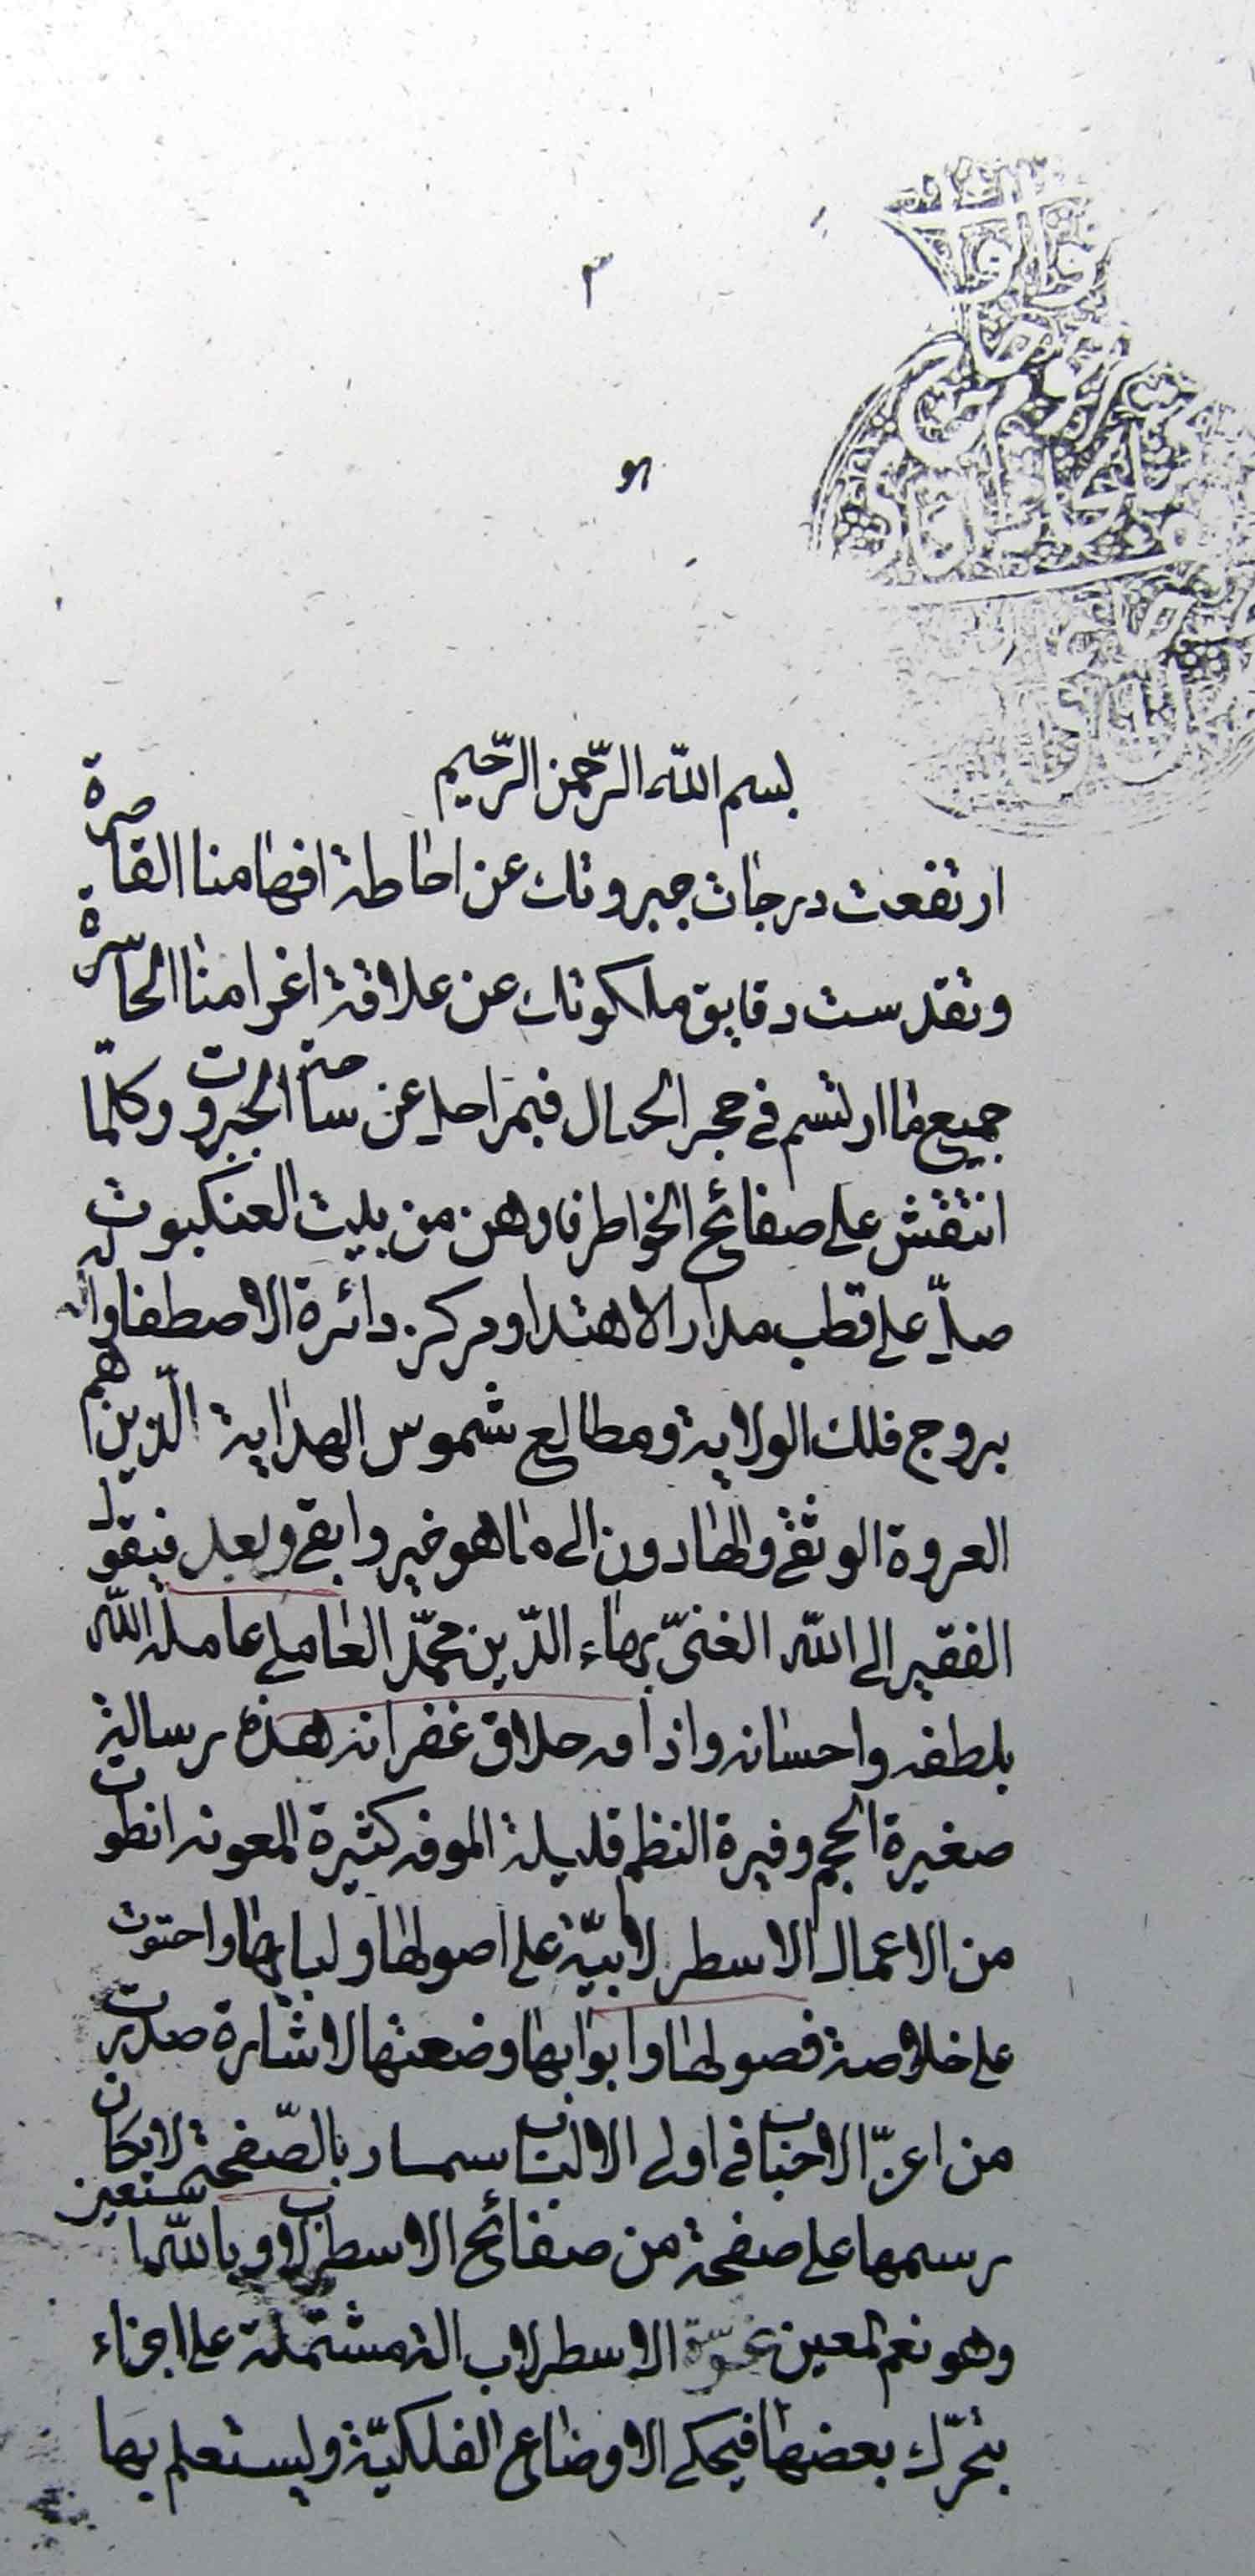 بسم الله الرّحمن الرّحيم
ارتفعت درجات جبروتك عن احاطة افهامنا القاصرة
وتقدست دقايق ملكوتك عن علاقة اغرامنا الحاسرة
جميع ما ارتسم في حجر الخيال فبمراحل عن ساحة الجبروت وكلّما
انتقش على صفائح الخواطر فاوهن من بيت العنكبوت
صلّ على قطب مدار الاهتدا ومركز دائرة الاصطفا واله
بروج فلك الولاية ومطالع شموس الهداية الّذين هم
العروة الوثقى والهادون الى ما هو خير وابقى وبعد فيقول
الفقير الى الله الغنىّ بهاء الدّين محمّد العاملى عامله الله
بلطفه واحسانه واذاقه حلاق غفرانه هذه رسالة
صغيرة الحجم وفيرة النظم قليلة الموفه كثيرة المعونه انطوت
من الاعمال الاسطرلابيّة على اصولها ولبابها واحتوت
على خلاصة فصولها وابوابها وضعتها لاشارة صدرت
من اعزّ الاحباب في اولى الالباب بالصّفحة لامكان
رسمها على صفحة من صفائح الاسطرلاب وبالله نستعين
وهو نعم المعين الاسطرلاب الة مشتملة على اجزاء
يتحرّك بعضها فيحكى الاوضاع الفلكيّة ويستعلم بها